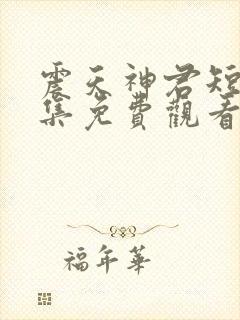 震天神君短
集免費觀看
福年華